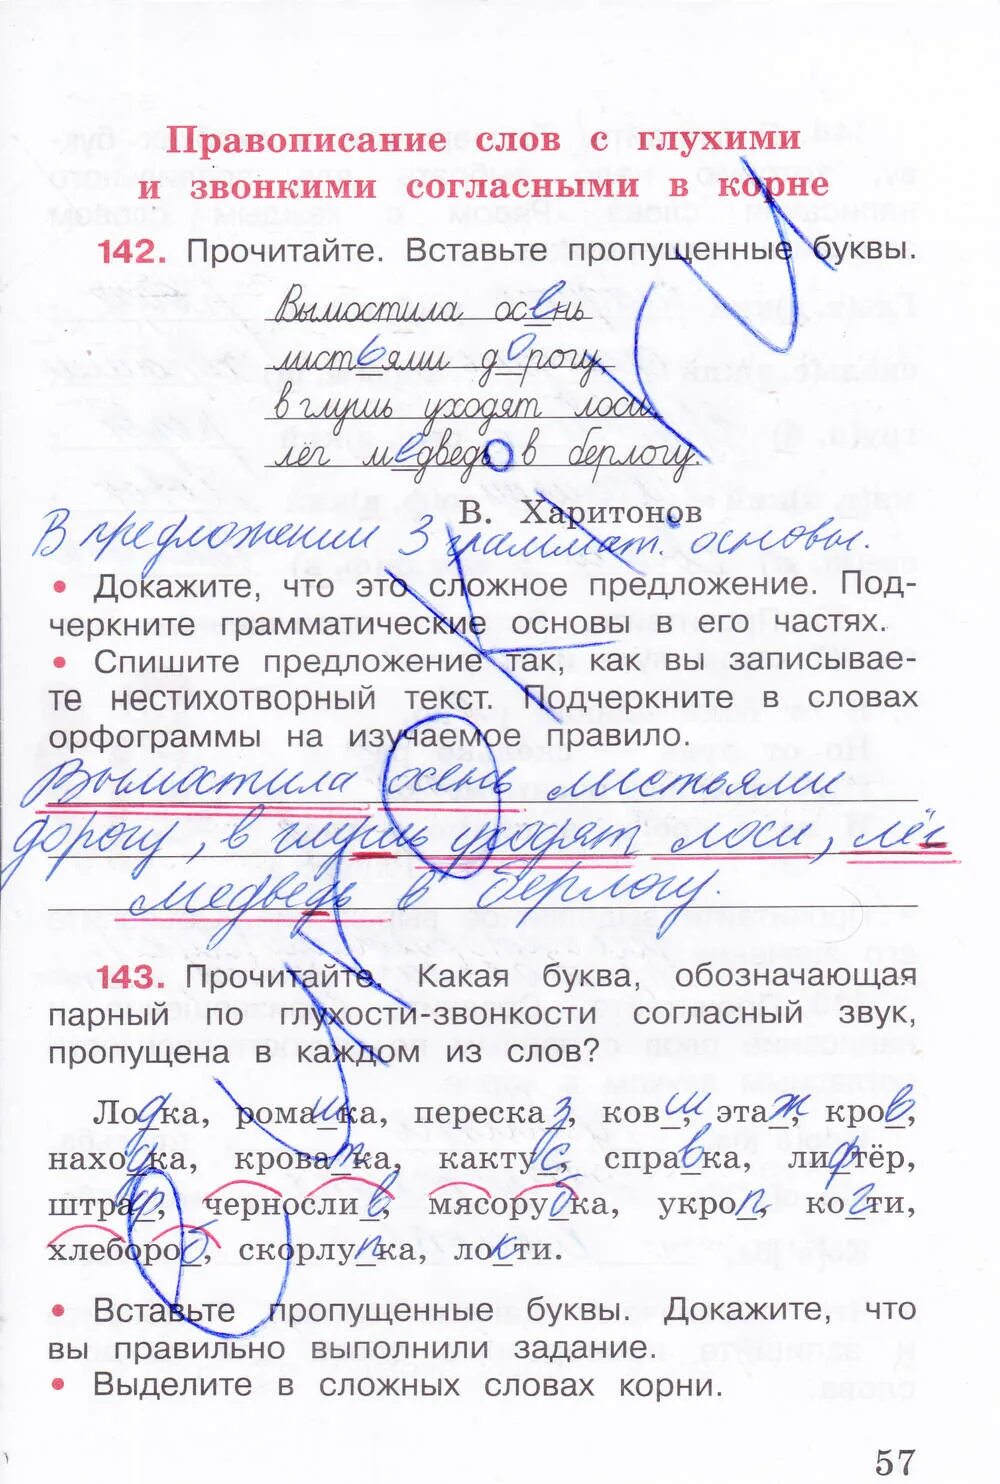 Правописание слов с глухими
и звонкими согласными в корне
142. Прочитайте. Вставьте пропущенные буквы.
Вымостила осень
листьями дорогу,
в глушь уходят лоси,
лёг медведь в берлогу.
В. Харитонов
В предложении 3 граммат. основы.
• Докажите, что это сложное предложение. Под-
черкните грамматические основы в его частях.
• Спишите предложение так, как вы записывае-
те нестихотворный текст. Подчеркните в словах
орфограммы на изучаемое правило.
Вымостила осень листьями
дорогу, в глушь уходят лоси, лёг
медведь в берлогу.
143. Прочитайте. Какая буква, обозначающая
парный по глухости-звонкости согласный звук,
пропущена в каждом из слов?
Лодка, ромашка, пересказ, ковш, этаж, кров,
находка, кроватка, кактус, справка, лифтёр,
штраф, чернослив, мясорубка, укроп, когти,
хлебороб, скорлупка, локти.
• Вставьте пропущенные буквы. Докажите, что
вы правильно выполнили задание.
• Выделите в сложных словах корни.
57